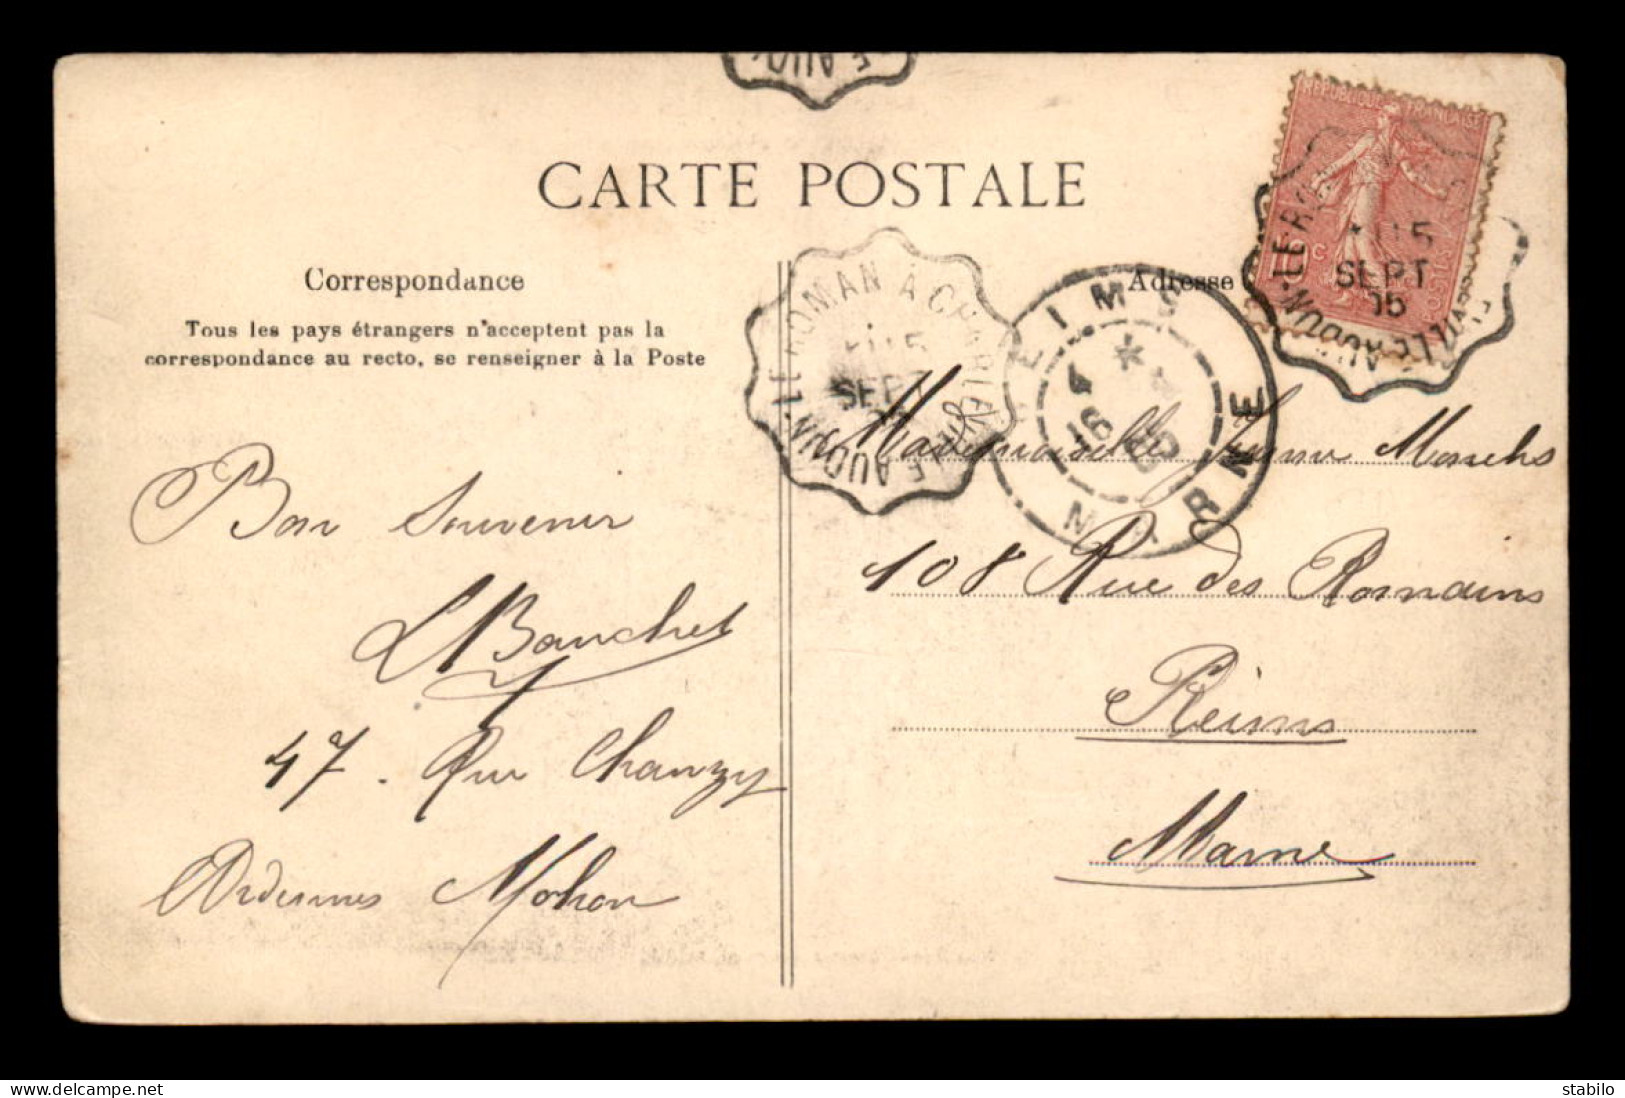 E AUD
CARTE POSTALE
REPUBLIQUE FRANÇAISE
10 c
POSTES
AUDUN-LE-ROMAN
SEPT
05
Correspondance
Tous les pays étrangers n'acceptent pas la
correspondance au recto, se renseigner à la Poste
Adresse
AUDUN-LE-ROMAN À CHARLEVILLE
SEPT
REIMS
MARNE
16
05
Bon Souvenir
L Bouchet
47. Rue Chanzy
Ardennes Mohon
Mademoiselle Jeanne
108 Rue des Romains
Reims
Marne
stabilo